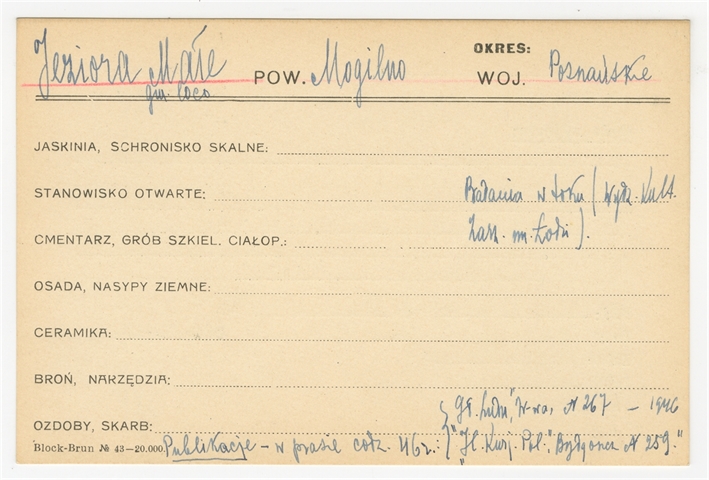 OKRES:
Jeziora Małe POW. Mogilno WOJ. Poznańskie
gm. loco
JASKINIA, SCHRONISKO SKALNE:
STANOWISKO OTWARTE: Badania w toku (Wydz. Kult.
CMENTARZ, GRÓB SZKIEL. CIAŁOP.: Zarz. m. Łodzi).
OSADA, NASYPY ZIEMNE:
CERAMIKA:
BROŃ, NARZĘDZIA:
OZDOBY, SKARB: { "Gł. Ludu", W-wa, N 267 — 1946
Block-Brun № 43—20.000. Publikacje - w prasie codz. 46 r.: "Il. Kurj. Pol.", Bydgoszcz N 259."